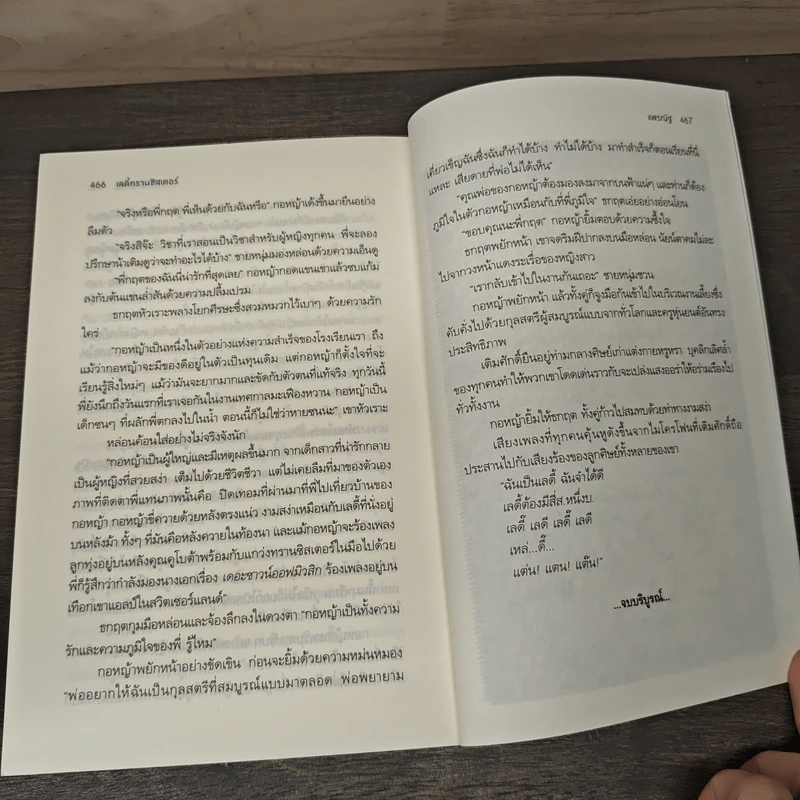 466 เลดี้ทรานซิสเตอร์
"จริงหรือพี่กฤต พี่เห็นด้วยกับฉันหรือ" กอหญ้าเด้งขึ้นมายืนอย่าง
ลืมตัว
"จริงสิจ๊ะ วิชาที่เราสอนเป็นวิชาสำหรับผู้หญิงทุกคน พี่จะลอง
ปรึกษาน้าเติมดูว่าจะทำอะไรได้บ้าง" ชายหนุ่มมองหล่อนด้วยความเอ็นดู
"พี่กฤตของฉันนี่น่ารักที่สุดเลย" กอหญ้ากอดแขนเขาแล้วซบแก้ม
ลงกับต้นแขนล่ำสันด้วยความปลื้มเปรม
ธกฤตหัวเราะพลางโยกศีรษะซึ่งสวมหมวกไว้เบาๆ ด้วยความรัก
ใคร่
"กอหญ้าเป็นหนึ่งในตัวอย่างแห่งความสำเร็จของโรงเรียนเรา ถึง
แม้ว่ากอหญ้าจะมีของดีอยู่ในตัวเป็นทุนเดิม แต่กอหญ้าก็ตั้งใจที่จะ
เรียนรู้สิ่งใหม่ๆ แม้ว่ามันจะยากมากและขัดกับตัวตนที่แท้จริง ทุกวันนี้
พี่ยังนึกถึงวันแรกที่เราเจอกันในงานเทศกาลมะเฟืองหวาน กอหญ้าเป็น
เด็กซนๆ ที่ผลักพี่ตกลงไปในน้ำ ตอนนี้ก็ไม่ใช่ว่าหายซนนะ" เขาหัวเราะ
หล่อนค้อนใส่อย่างไม่จริงจังนัก
"กอหญ้าเป็นผู้ใหญ่และมีเหตุผลขึ้นมาก จากเด็กสาวที่น่ารักกลาย
เป็นผู้หญิงที่สวยสง่า เต็มไปด้วยชีวิตชีวา แต่ไม่เคยลืมที่มาของตัวเอง
ภาพที่ติดตาพี่แทนภาพนั้นคือ ปิดเทอมที่ผ่านมาที่พี่ไปเที่ยวบ้านของ
กอหญ้า กอหญ้าขี่ควายด้วยหลังตรงแน่ว งามสง่าเหมือนกับเลดี้ที่นั่งอยู่
บนหลังม้า ทั้งๆ ที่มันคือหลังควายในท้องนา และแม้กอหญ้าจะร้องเพลง
ลูกทุ่งอยู่บนหลังคุณคูโบต้าพร้อมกับแกว่งทรานซิสเตอร์ในมือไปด้วย
พี่ก็รู้สึกว่ากำลังมองนางเอกเรื่อง เดอะซาวน์ออฟมิวสิก ร้องเพลงอยู่บน
เทือกเขาแอลป์ในสวิตเซอร์แลนด์"
ธกฤตกุมมือหล่อนและจ้องลึกลงในดวงตา "กอหญ้าเป็นทั้งความ
รักและความภูมิใจของพี่ รู้ไหม"
กอหญ้าพยักหน้าอย่างขัดเขิน ก่อนจะยิ้มด้วยความหม่นหมอง
"พ่ออยากให้ฉันเป็นกุลสตรีที่สมบูรณ์แบบมาตลอด พ่อพยายาม
แพรณัฐ 467
เคี่ยวเข็ญฉันซึ่งฉันก็ทำได้บ้าง ทำไม่ได้บ้าง มาทำสำเร็จก็ตอนเรียนที่นี่
แหละ เสียดายที่พ่อไม่ได้เห็น"
"คุณพ่อของกอหญ้าต้องมองลงมาจากบนฟ้าแน่ๆ และท่านก็ต้อง
ภูมิใจในตัวกอหญ้าเหมือนกับที่พี่ภูมิใจ" ธกฤตเอ่ยอย่างอ่อนโยน
"ขอบคุณนะพี่กฤต" กอหญ้ายิ้มตอบด้วยความซึ้งใจ
ธกฤตพยักหน้า เขาจดริมฝีปากลงบนมือหล่อน นัยน์ตาคมไม่ละ
ไปจากวงหน้าแดงระเรื่อของหญิงสาว
"เรากลับเข้าไปในงานกันเถอะ" ชายหนุ่มชวน
กอหญ้าพยักหน้า แล้วทั้งคู่ก็จูงมือกันเข้าไปในบริเวณงานเลี้ยงซึ่ง
คับคั่งไปด้วยกุลสตรีผู้สมบูรณ์แบบจากทั่วโลกและครูหุ่นยนต์อันทรง
ประสิทธิภาพ
เติมศักดิ์ยืนอยู่ท่ามกลางศิษย์เก่าแต่งกายหรูหรา บุคลิกเลิศล้ำ
ของทุกคนทำให้พวกเขาโดดเด่นราวกับจะเปล่งแสงออร่าให้อร่ามเรืองไป
ทั่วทั้งงาน
กอหญ้ายิ้มให้ธกฤต ทั้งคู่ก้าวไปสมทบด้วยท่าทางงามสง่า
เสียงเพลงที่ทุกคนคุ้นหูดังขึ้นจากไมโครโฟนที่เติมศักดิ์ถือ
ประสานไปกับเสียงร้องของลูกศิษย์ทั้งหลายของเขา
"ฉันเป็นเลดี้ ฉันจำได้ดี
เลดี้ต้องมีสี่ส.หนึ่งบ.
เลดี๊ เลดี เลดี๊ เลดี
เหล่...ดี๊...
แต่น! แตน! แต๊น!"
...จบบริบูรณ์...